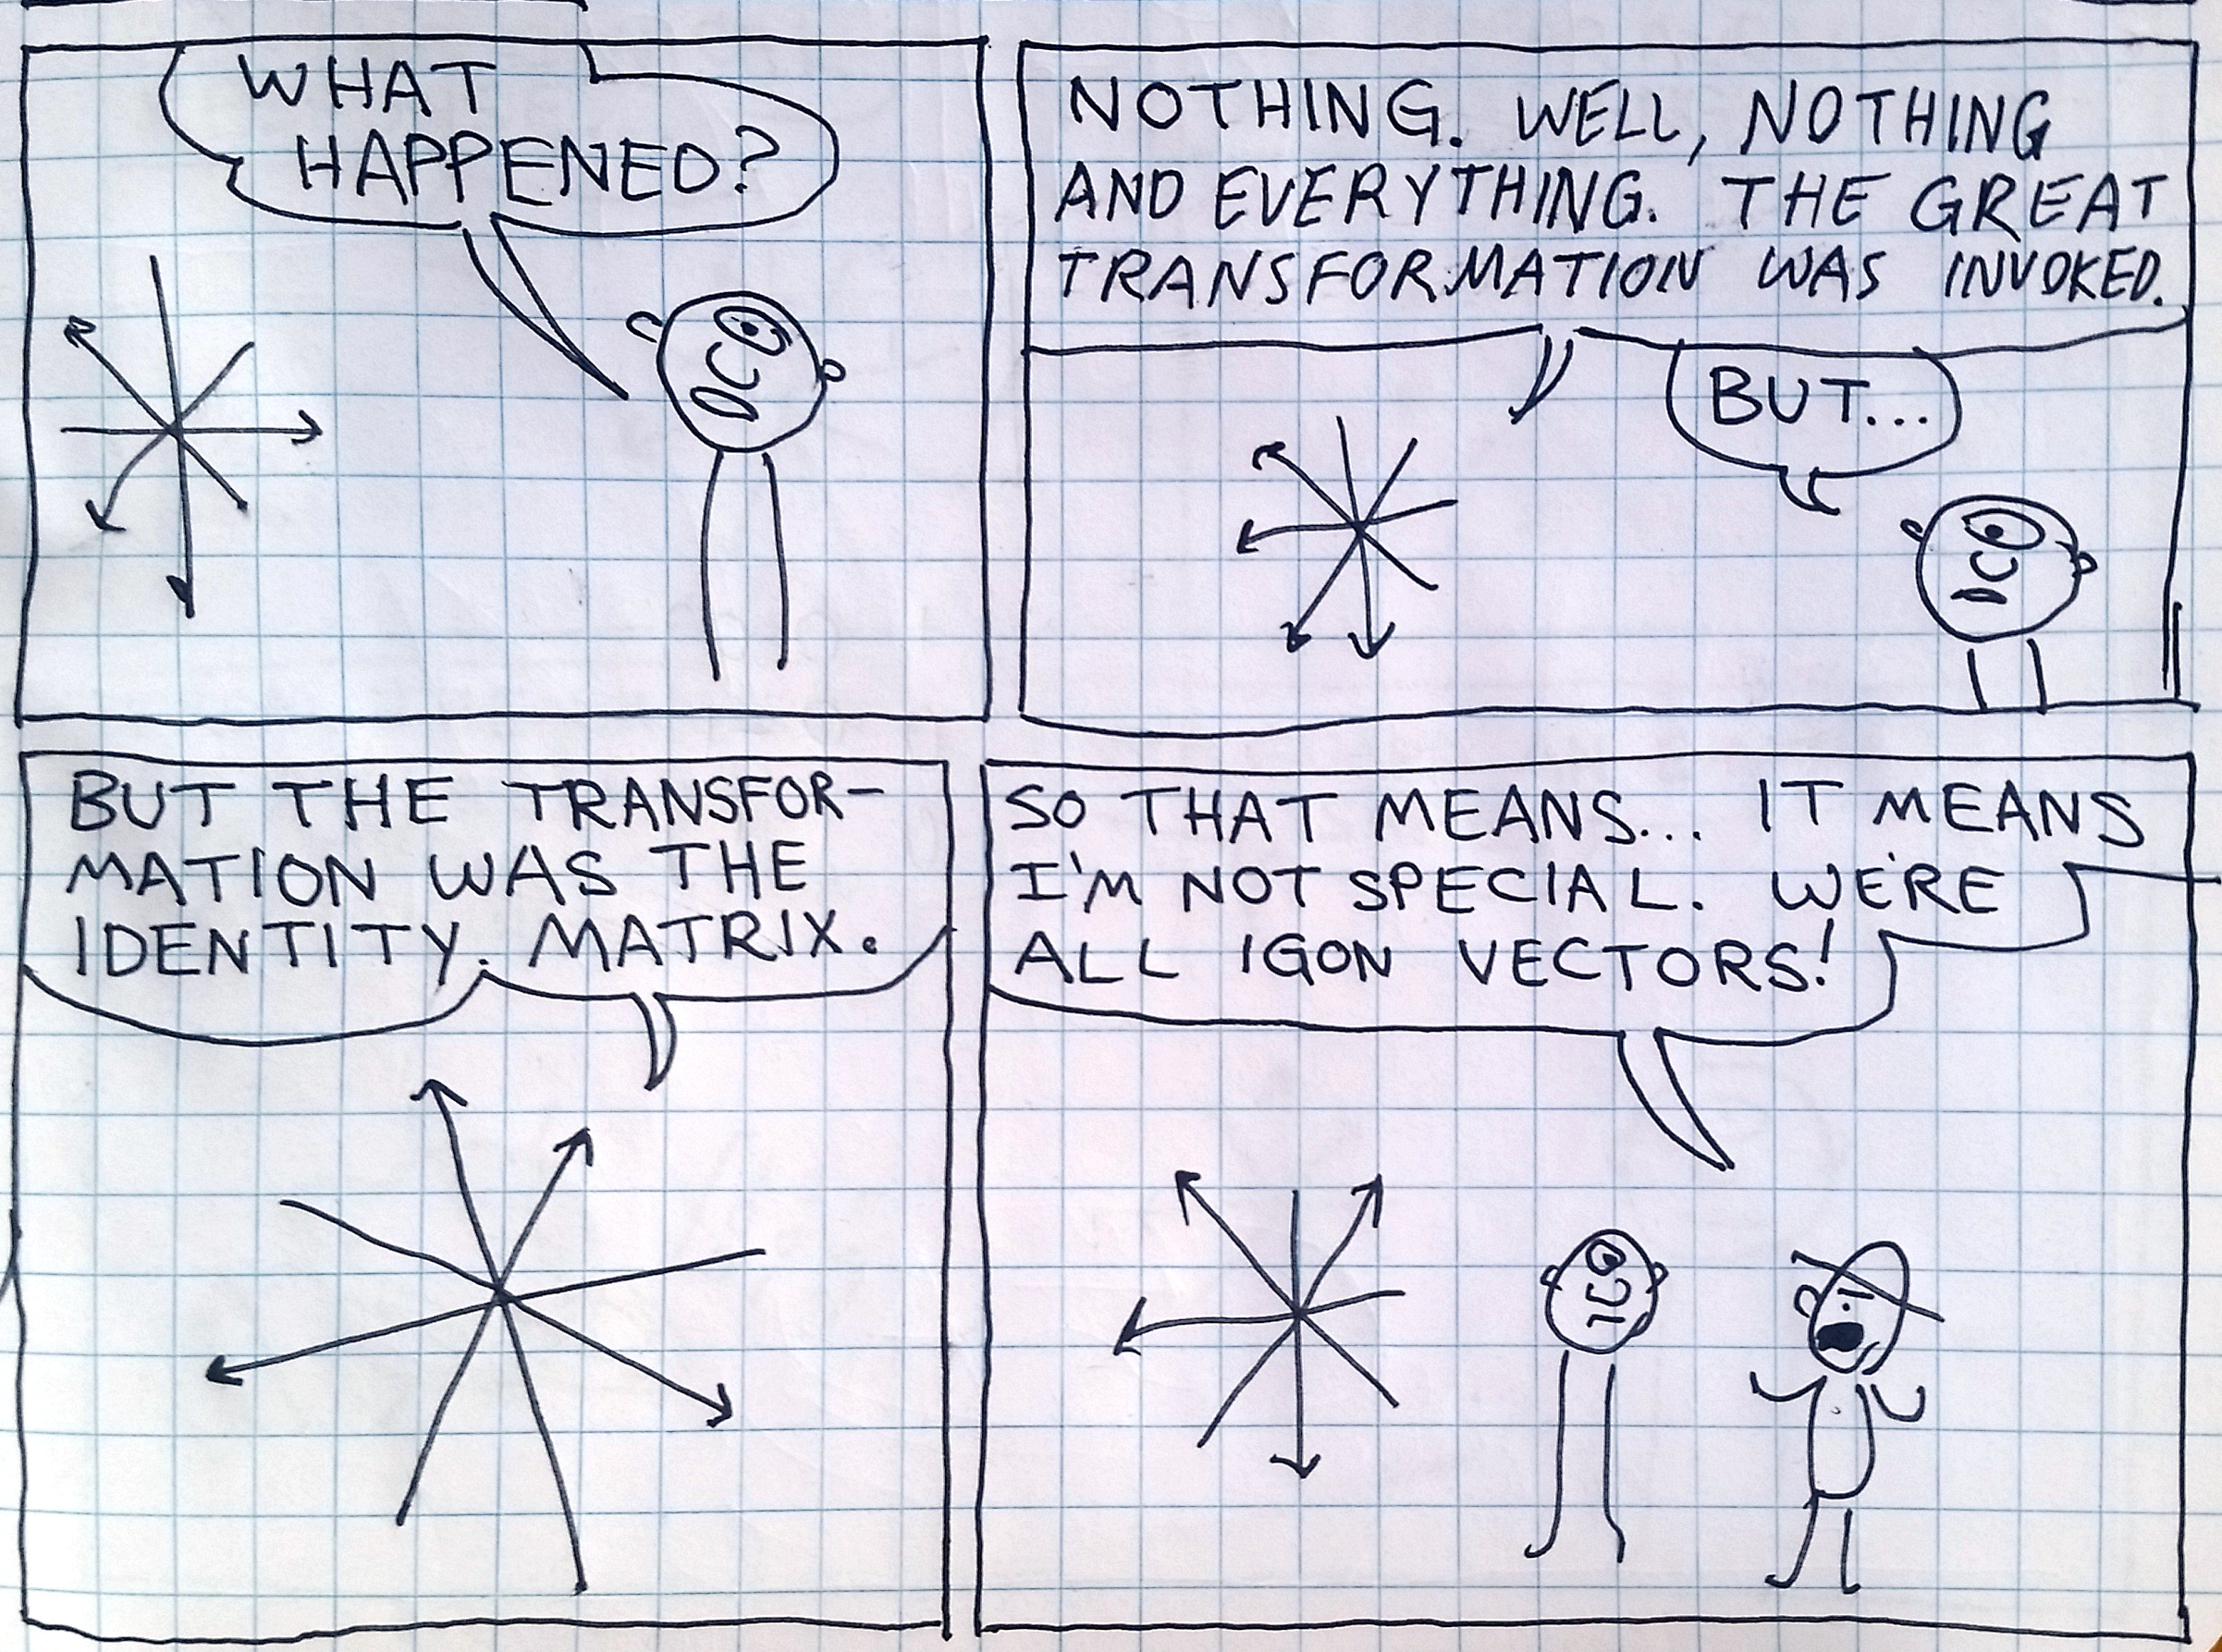 WHAT
HAPPENED?
NOTHING. WELL, NOTHING
AND EVERYTHING. THE GREAT
TRANSFORMATION WAS INVOKED.
BUT...
BUT THE TRANSFOR-
MATION WAS THE
IDENTITY. MATRIX.
SO THAT MEANS... IT MEANS
I'M NOT SPECIAL. WE'RE
ALL IGON VECTORS!